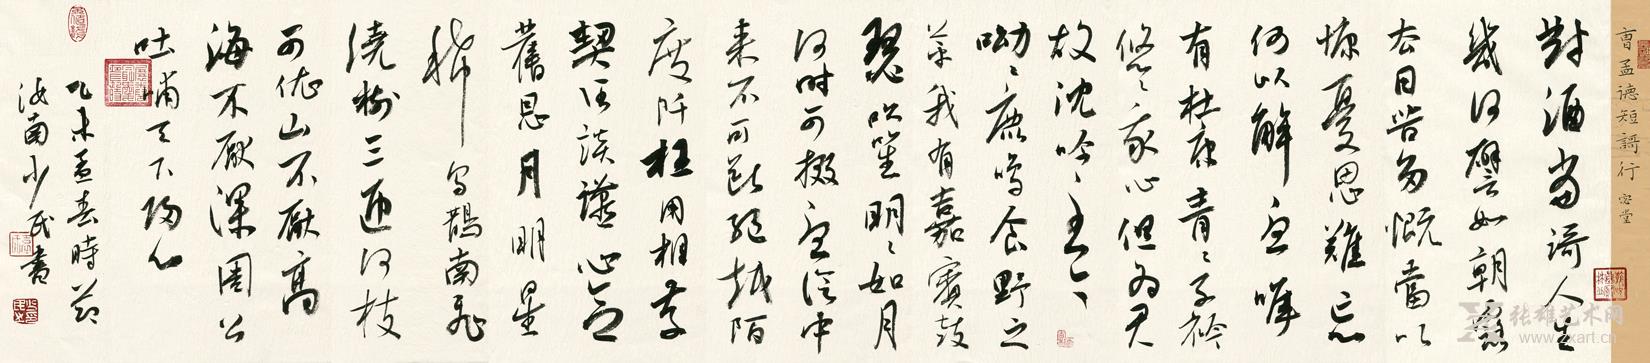 曹孟德短謌行
對酒當謌人生
幾何譬如朝露
去日苦多慨當以
慷憂思難忘
何以解憂唯
有杜康青〻子衿
悠〻我心但為君
故沈吟〻至今
呦〻鹿鳴食野之
苹我有嘉賓鼓
瑟吹笙明〻如月
何時可掇憂從中
來不可斷絕越陌
度阡枉用相存
契闊談讌心念
舊恩月明星
稀烏鵲南飛
繞樹三匝何枝
可依山不厭高
海不厭深周公
吐哺天下歸心
乙未孟春時節
汝南少民書
张雄艺术网
zxart.cn